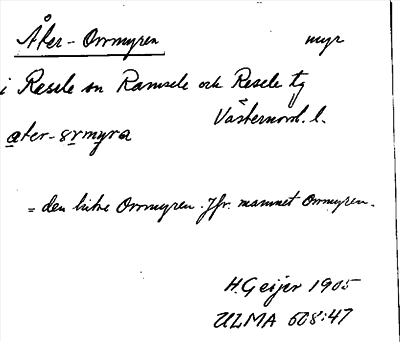 Åter-Orrmyren myr
i Resele sn Ramsele och Resele tg
Västernorrl. l.
ater-ɤrmyra
= den bitre Orrmyren. Jfr. namnet Orrmyren.
H. Geijer 1905
ULMA 608:47